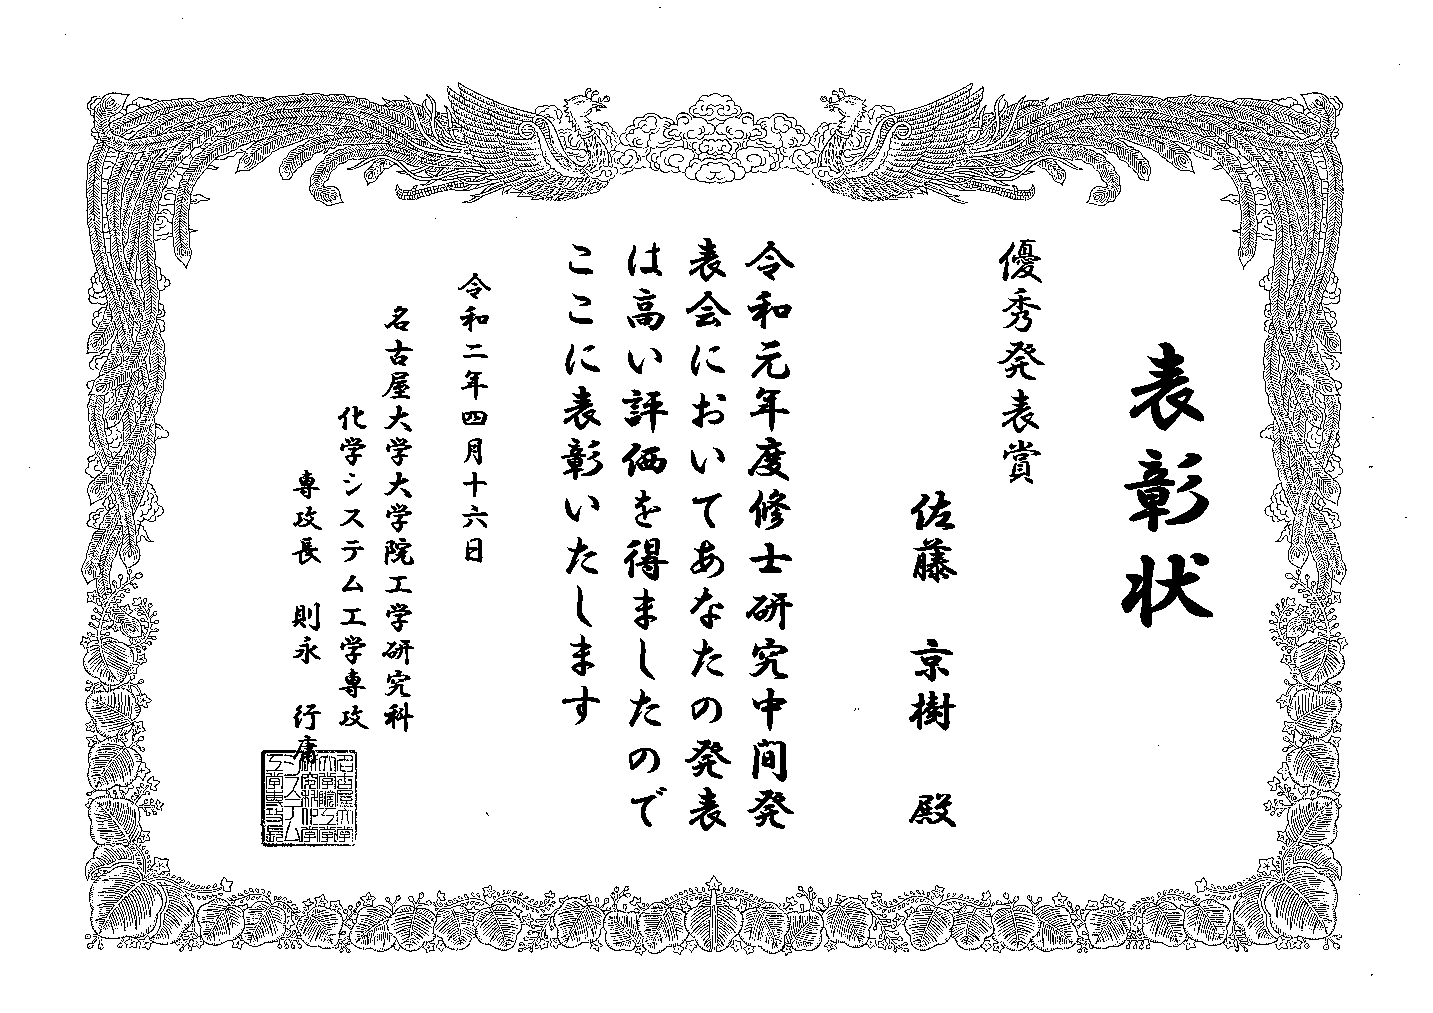 表彰状
優秀発表賞
佐藤 京樹 殿
令和元年度修士研究中間発
表会においてあなたの発表
は高い評価を得ましたので
ここに表彰いたします
令和二年四月十六日
名古屋大学大学院工学研究科
化学システム工学専攻
専攻長 則永 行庸